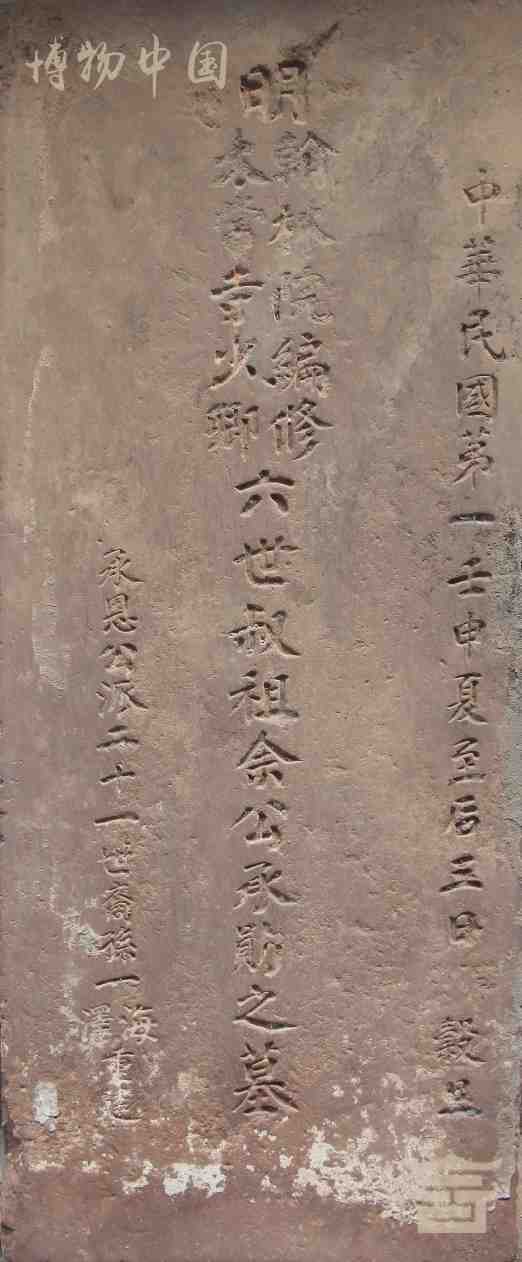 博物中国
中華民國第一壬申夏至后三日 穀旦
明
翰林院編修
太常寺少卿
六世叔祖余公承勛之墓
承恩公派二十一世裔孫一海澤重建